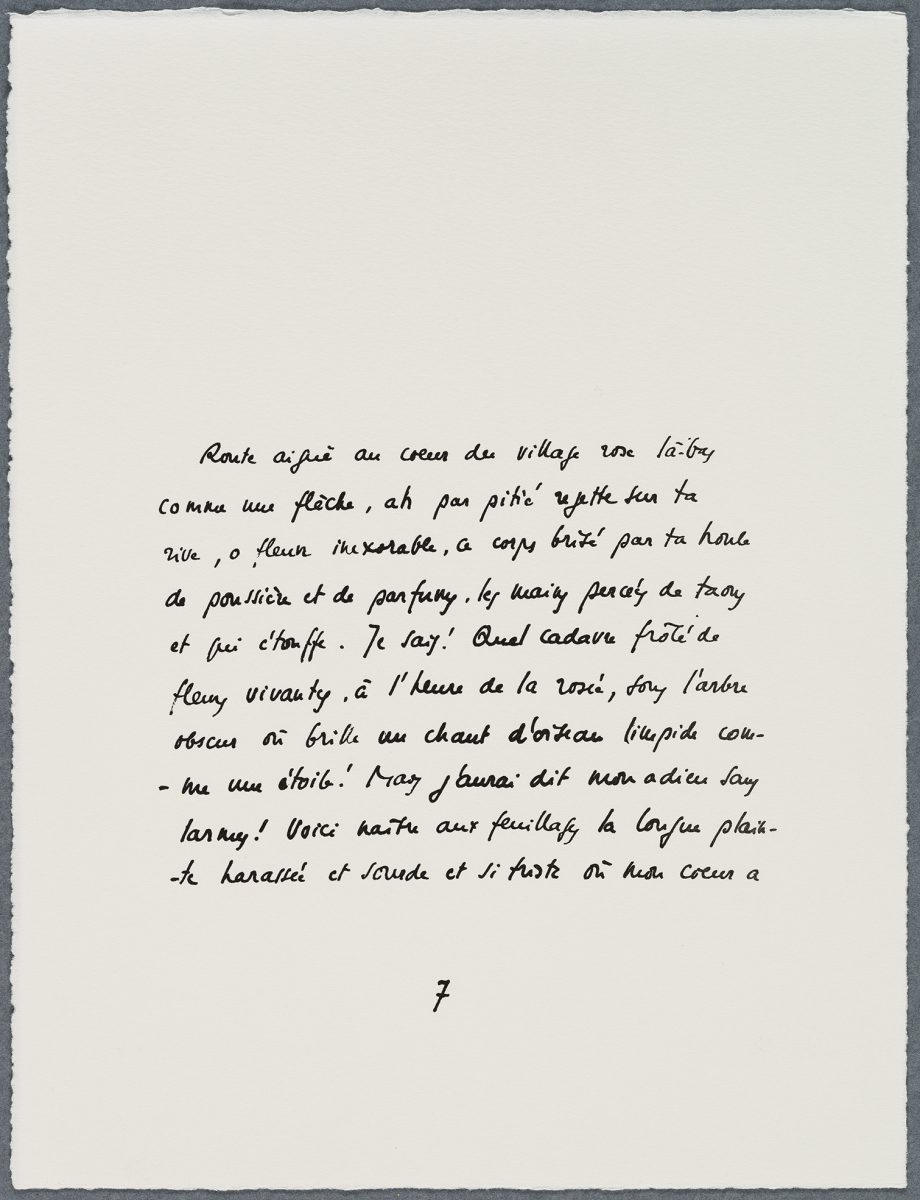 Route aiguë au coeur du village rose là-bas
comme une flèche, ah par pitié rejette sur ta
rive, o fleuve inexorable, ce corps brisé par ta houle
de poussière et de parfums, les mains percées de taons
et qui étouffe. Je sais! Quel cadavre frôlé de
fleurs vivantes, à l'heure de la rosée, sous l'arbre
obscur où brille un chant d'oiseau limpide com-
- me une étoile! Mais j'aurai dit mon adieu sans
larmes! Voici naître aux feuillages la longue plain-
-te harassée et sourde et si triste où mon coeur a
7